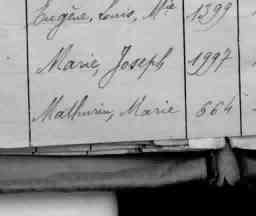 Eugène, Louis, Mie 1399
Marie, Joseph 1997
Mathurin, Marie 664